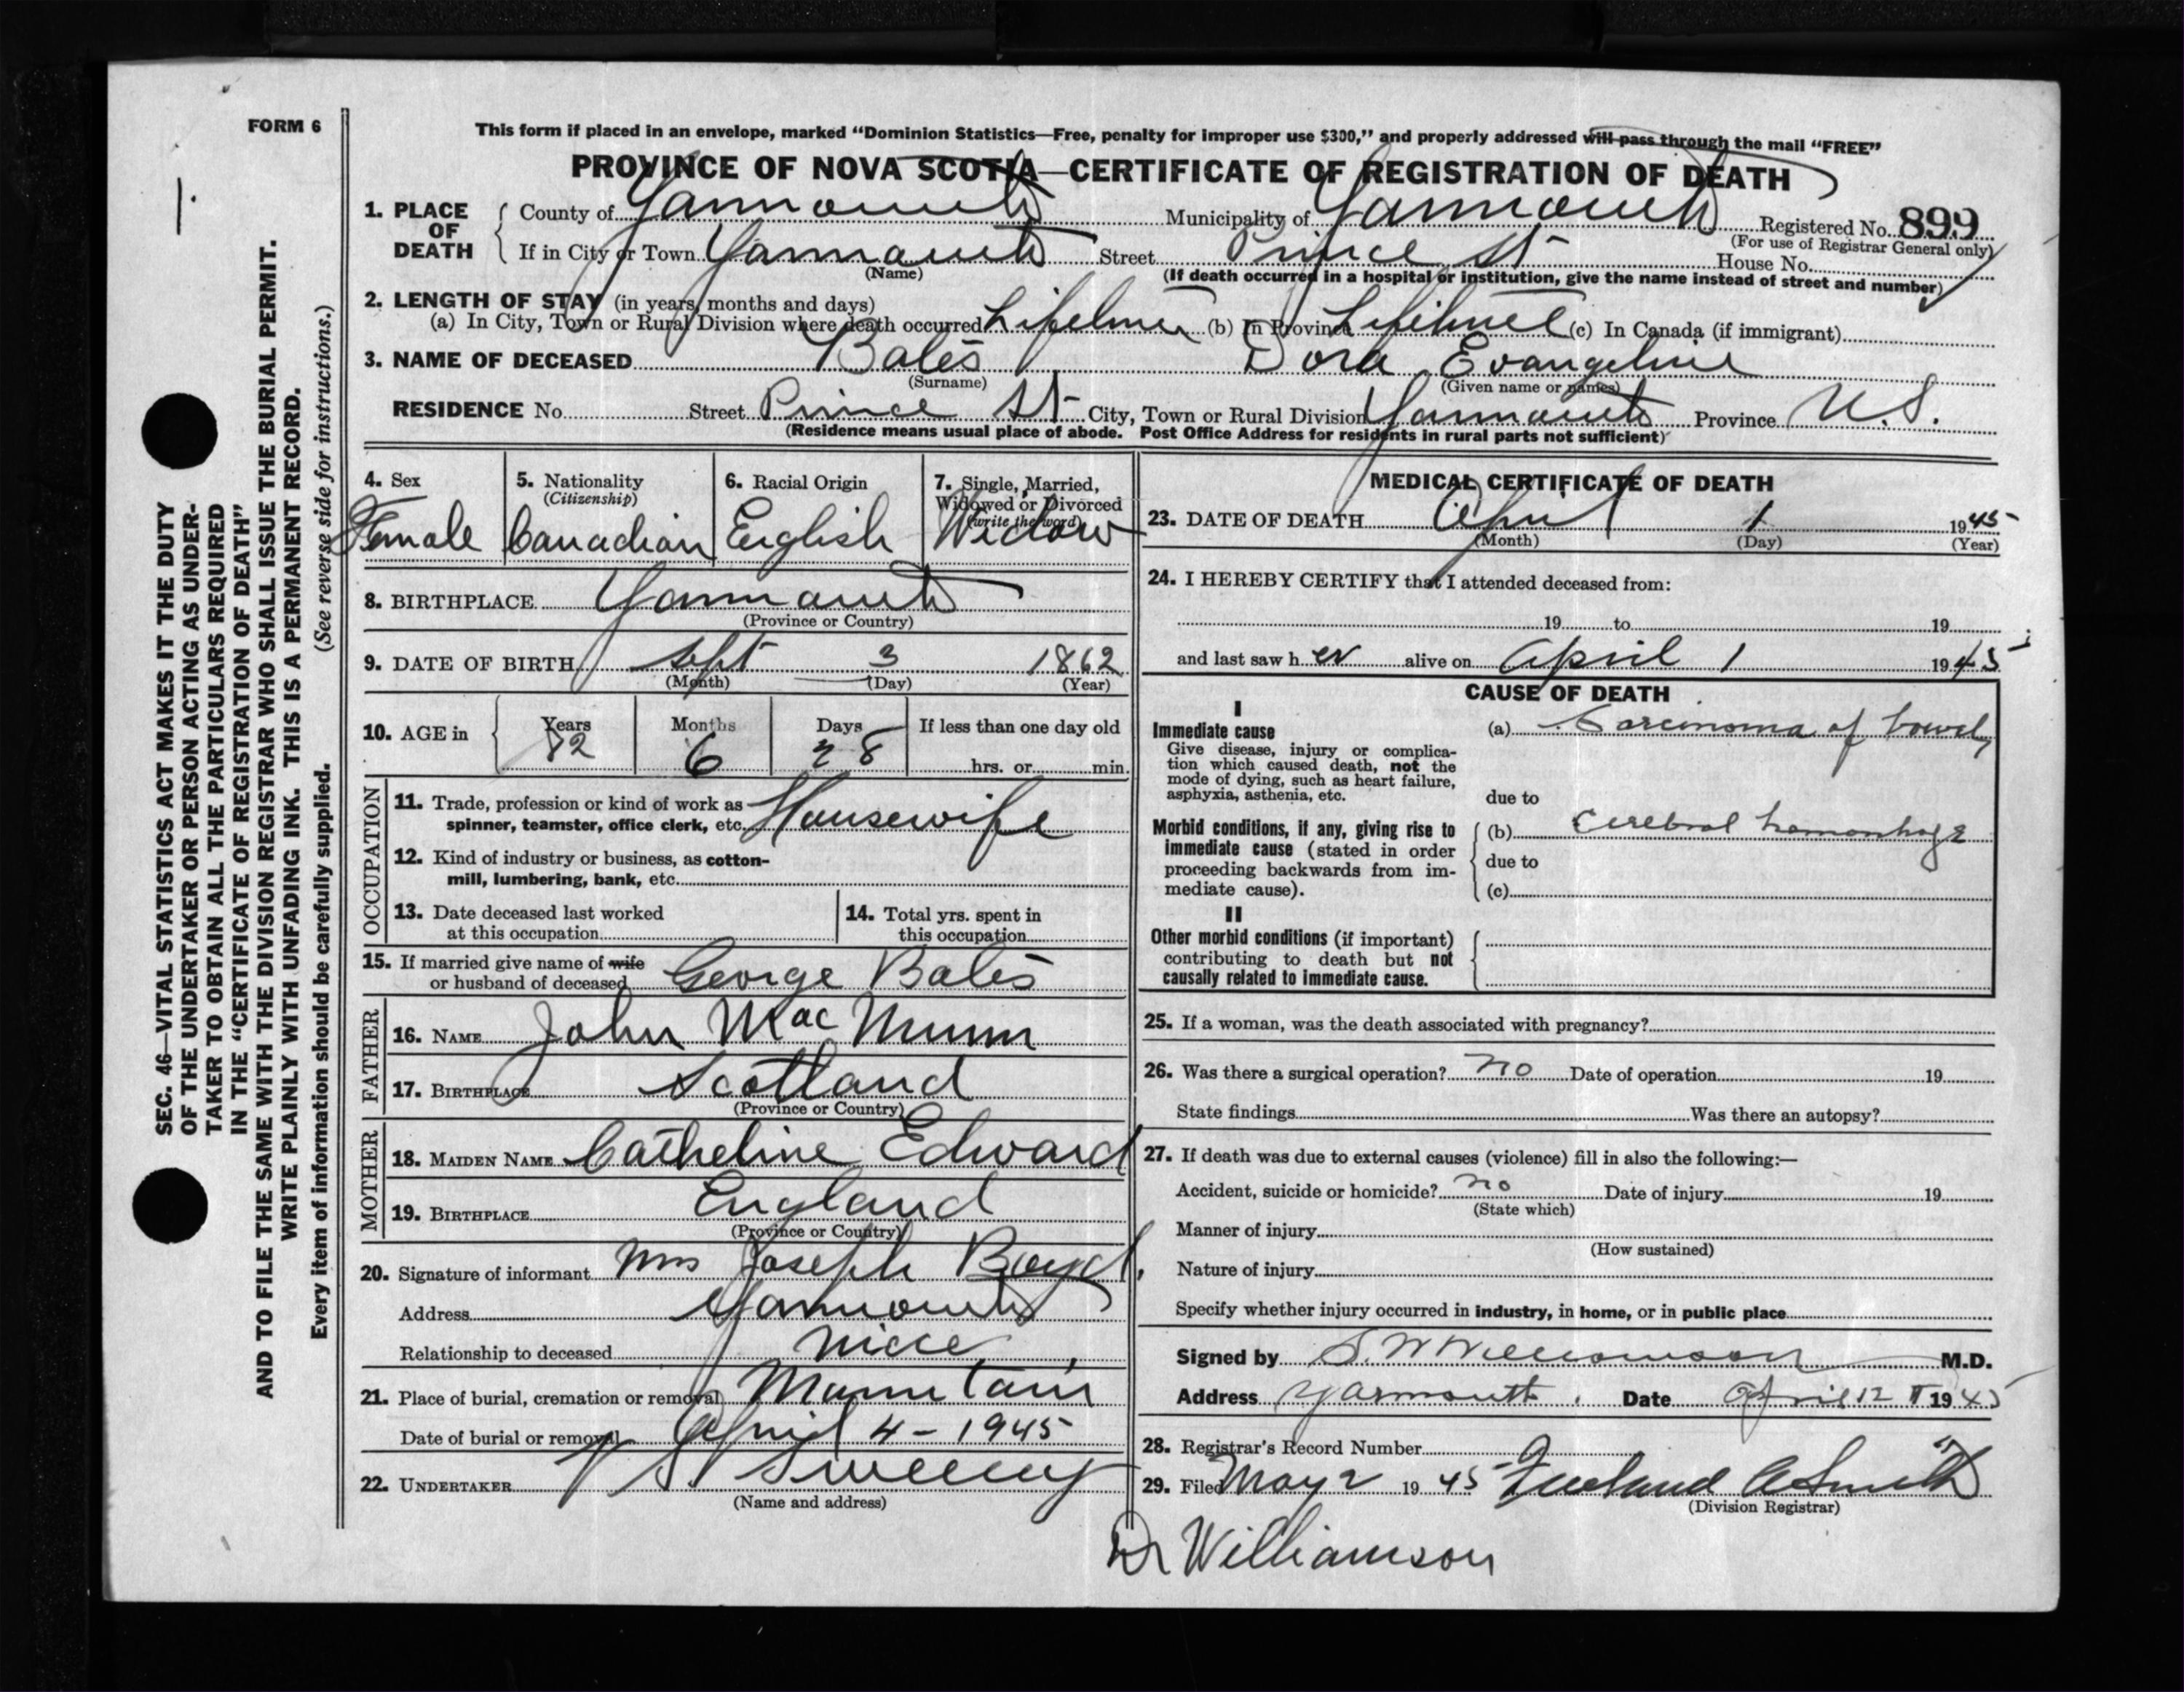 FORM 6
This form if placed in an envelope, marked "Dominion Statistics—Free, penalty for improper use $300," and properly addressed will pass through the mail "FREE"
PROVINCE OF NOVA SCOTIA—CERTIFICATE OF REGISTRATION OF DEATH
1.
1. PLACE OF DEATH County of Yarmouth Municipality of Yarmouth Registered No. 899
(For use of Registrar General only)
If in City or Town Yarmouth Street Prince St House No.
(Name) (If death occurred in a hospital or institution, give the name instead of street and number)
2. LENGTH OF STAY (in years, months and days)
(a) In City, Town or Rural Division where death occurred Lifetime (b) In Province Lifetime (c) In Canada (if immigrant)
3. NAME OF DECEASED Bates Dora Evangeline
(Surname) (Given name or names)
RESIDENCE No. Street Prince St City, Town or Rural Division Yarmouth Province N.S.
(Residence means usual place of abode. Post Office Address for residents in rural parts not sufficient)
4. Sex Female
5. Nationality (Citizenship) Canadian
6. Racial Origin English
7. Single, Married, Widowed or Divorced (write the word) Widow
8. BIRTHPLACE Yarmouth
(Province or Country)
9. DATE OF BIRTH Sept 3 1862
(Month) (Day) (Year)
10. AGE in Years 82 Months 6 Days 28 If less than one day old
hrs. or min.
OCCUPATION
11. Trade, profession or kind of work as
spinner, teamster, office clerk, etc. Housewife
12. Kind of industry or business, as cotton-
mill, lumbering, bank, etc.
13. Date deceased last worked
at this occupation
14. Total yrs. spent in
this occupation
15. If married give name of wife
or husband of deceased George Bates
FATHER
16. NAME John MacMunn
17. BIRTHPLACE Scotland
(Province or Country)
MOTHER
18. MAIDEN NAME Catheline Edward
19. BIRTHPLACE England
(Province or Country)
20. Signature of informant Mrs Joseph Boyd,
Address Yarmouth
Relationship to deceased niece
21. Place of burial, cremation or removal Mountain
Date of burial or removal April 4 - 1945
22. UNDERTAKER V S Sweeny
(Name and address)
MEDICAL CERTIFICATE OF DEATH
23. DATE OF DEATH April 1 1945
(Month) (Day) (Year)
24. I HEREBY CERTIFY that I attended deceased from:
19 to 19
and last saw her alive on April 1 1945
CAUSE OF DEATH
I
Immediate cause
Give disease, injury or complica-
tion which caused death, not the
mode of dying, such as heart failure,
asphyxia, asthenia, etc.
(a) Carcinoma of bowel
due to
Morbid conditions, if any, giving rise to
immediate cause (stated in order
proceeding backwards from im-
mediate cause).
(b) Cerebral hemorrhage
due to
(c)
II
Other morbid conditions (if important)
contributing to death but not
causally related to immediate cause.
25. If a woman, was the death associated with pregnancy?
26. Was there a surgical operation? no Date of operation 19
State findings Was there an autopsy?
27. If death was due to external causes (violence) fill in also the following:—
Accident, suicide or homicide? no Date of injury 19
(State which)
Manner of injury
(How sustained)
Nature of injury
Specify whether injury occurred in industry, in home, or in public place
Signed by S. W Williamson M.D.
Address Yarmouth. Date April 12 1945
28. Registrar's Record Number
29. Filed May 2 1945 Freeland A Smith
(Division Registrar)
Dr Williamson
SEC. 46—VITAL STATISTICS ACT MAKES IT THE DUTY
OF THE UNDERTAKER OR PERSON ACTING AS UNDER-
TAKER TO OBTAIN ALL THE PARTICULARS REQUIRED
IN THE "CERTIFICATE OF REGISTRATION OF DEATH"
AND TO FILE THE SAME WITH THE DIVISION REGISTRAR WHO SHALL ISSUE THE BURIAL PERMIT.
WRITE PLAINLY WITH UNFADING INK. THIS IS A PERMANENT RECORD.
Every item of information should be carefully supplied. (See reverse side for instructions.)